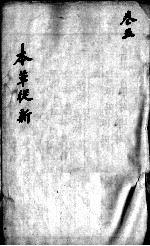 卷五
本草從新